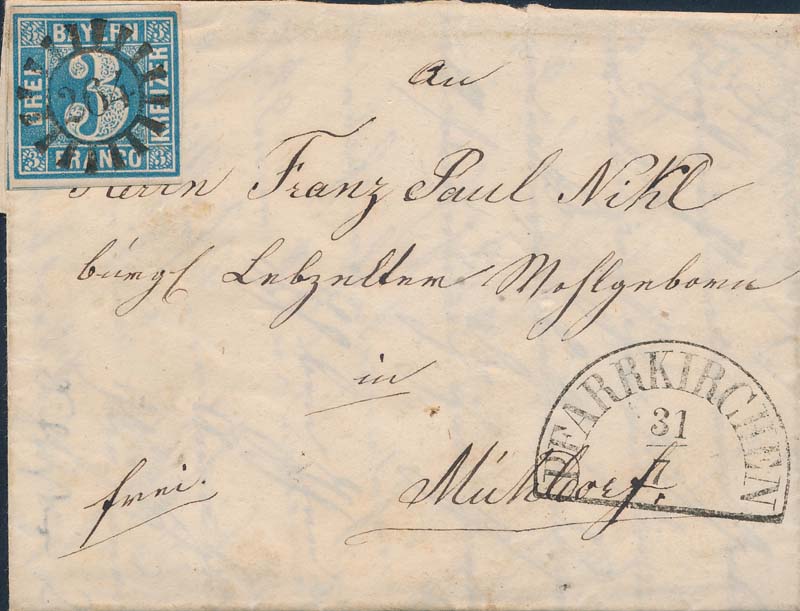 BAYERN
DREI
3
KREUZER
FRANCO
264
An
Herrn Franz Paul Nikl
bürgl Lebzelter Wohlgeborn
in
Mühldorf.
frei.
PFARRKIRCHEN
31
7